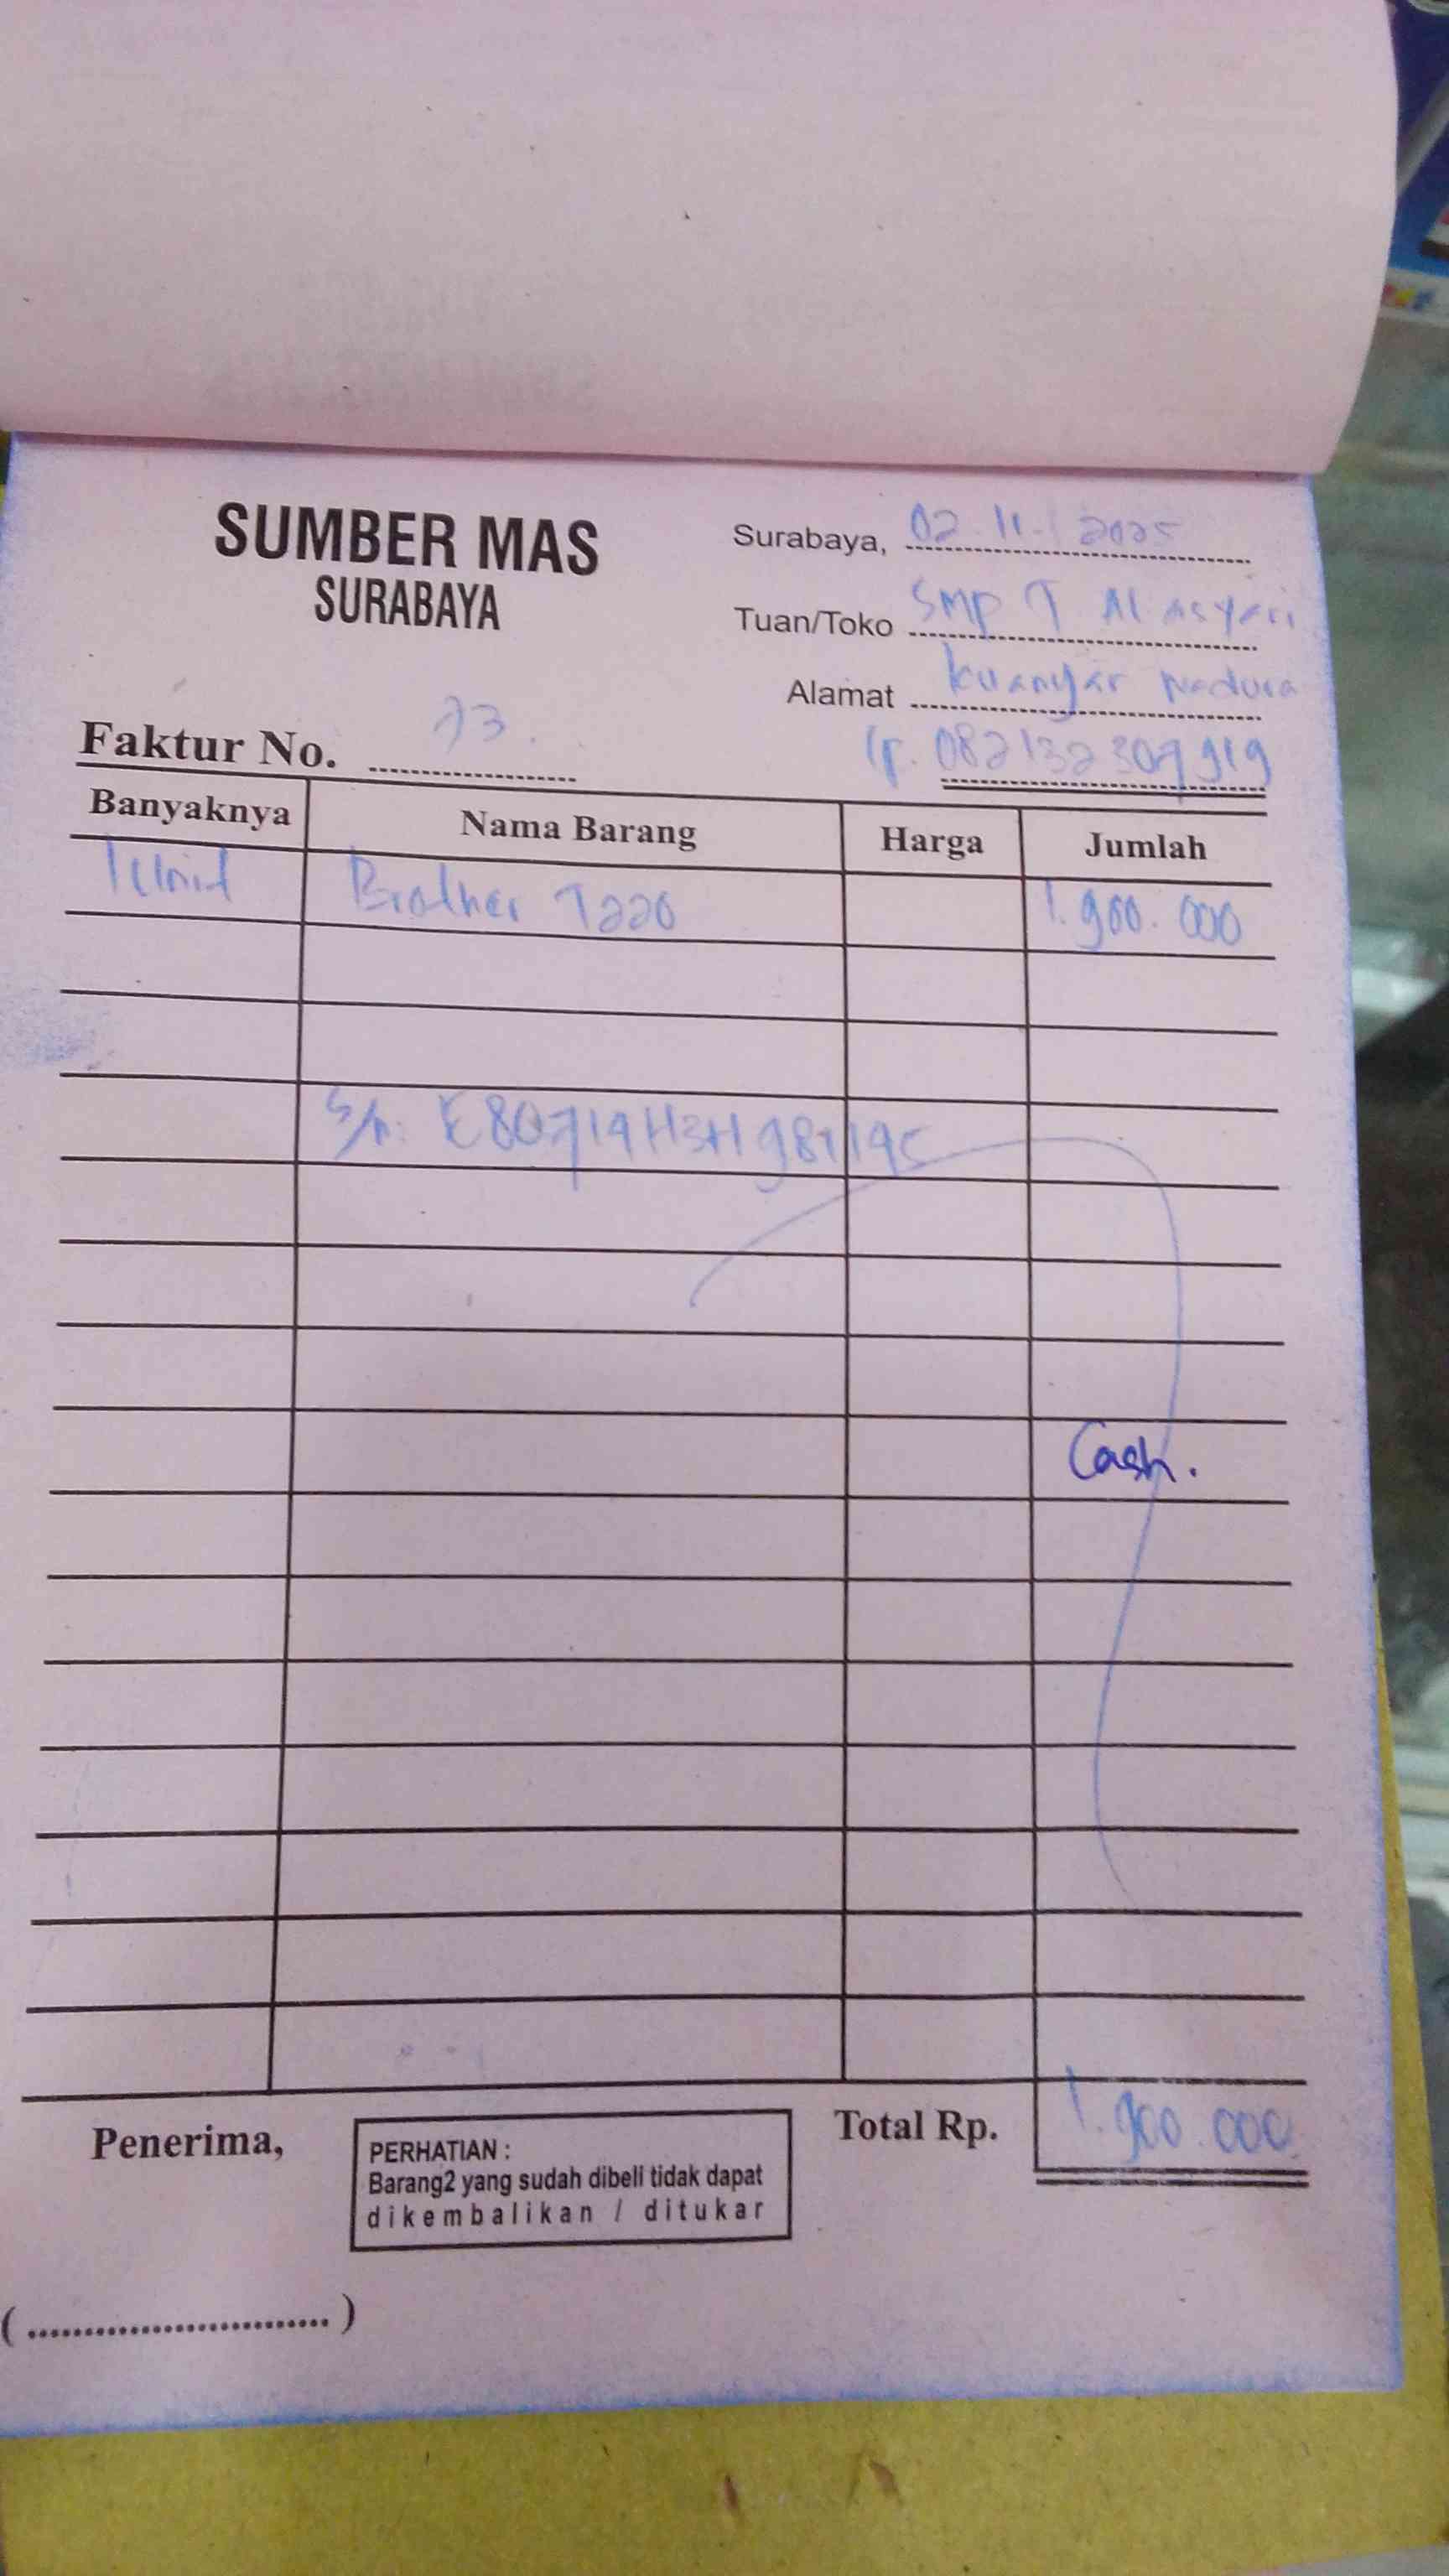 SUMBER MAS
SURABAYA
Surabaya, 02-11-2025
Tuan/Toko SMP T Al Asyari
Alamat kwanyar Madura
Tp. 082132307919
Faktur No. 73.
Banyaknya Nama Barang Harga Jumlah
1 Unit Brother T220 1.900.000
S/n: E80719H3H981195
Cash.
Total Rp. 1.900.000
Penerima,
PERHATIAN :
Barang2 yang sudah dibeli tidak dapat
dikembalikan / ditukar
( ............................ )